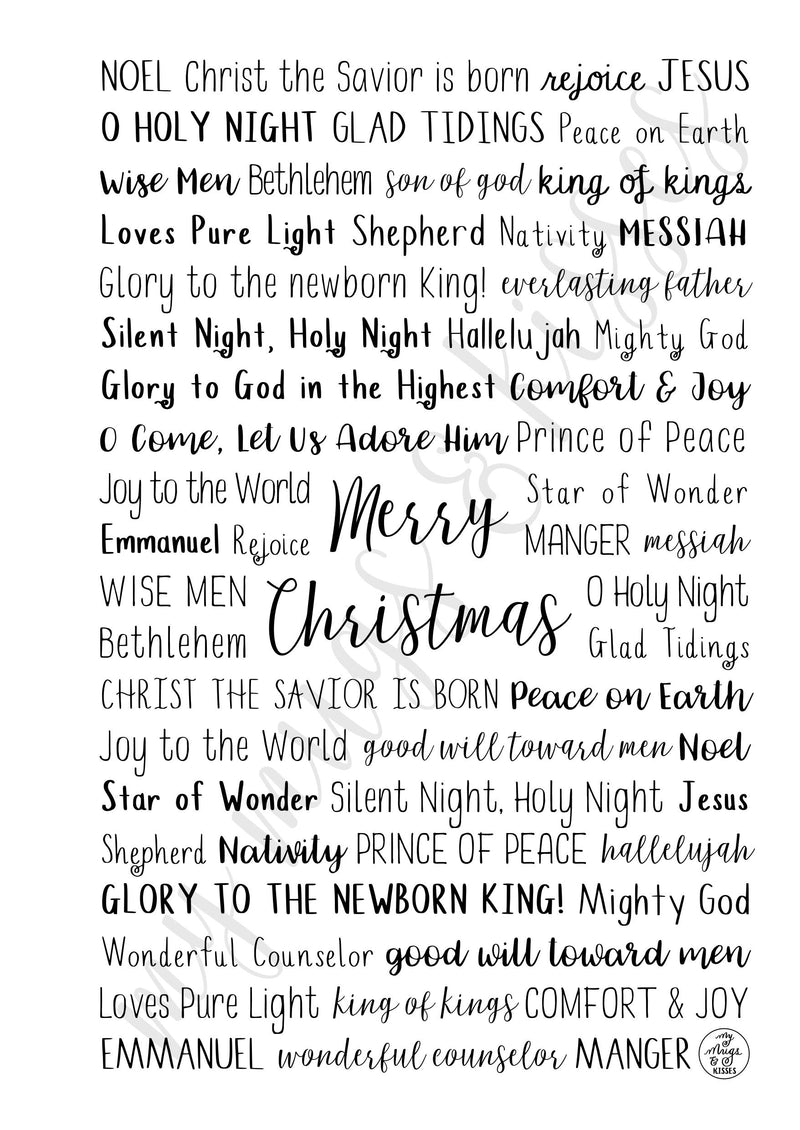 NOEL Christ the Savior is born rejoice JESUS
O HOLY NIGHT GLAD TIDINGS Peace on Earth
Wise Men Bethlehem son of god king of kings
Loves Pure Light Shepherd Nativity MESSIAH
Glory to the newborn King! everlasting father
Silent Night, Holy Night Hallelujah Mighty God
Glory to God in the Highest Comfort & Joy
O Come, Let Us Adore Him Prince of Peace
Joy to the World
Emmanuel Rejoice
Merry
Star of Wonder
MANGER messiah
WISE MEN
Bethlehem
Christmas
O Holy Night
Glad Tidings
CHRIST THE SAVIOR IS BORN Peace on Earth
Joy to the World good will toward men Noel
Star of Wonder Silent Night, Holy Night Jesus
Shepherd Nativity PRINCE OF PEACE hallelujah
GLORY TO THE NEWBORN KING! Mighty God
Wonderful Counselor good will toward men
Loves Pure Light king of kings COMFORT & JOY
EMMANUEL wonderful counselor MANGER
my
Mugs
&
KISSES
my mugs & kisses